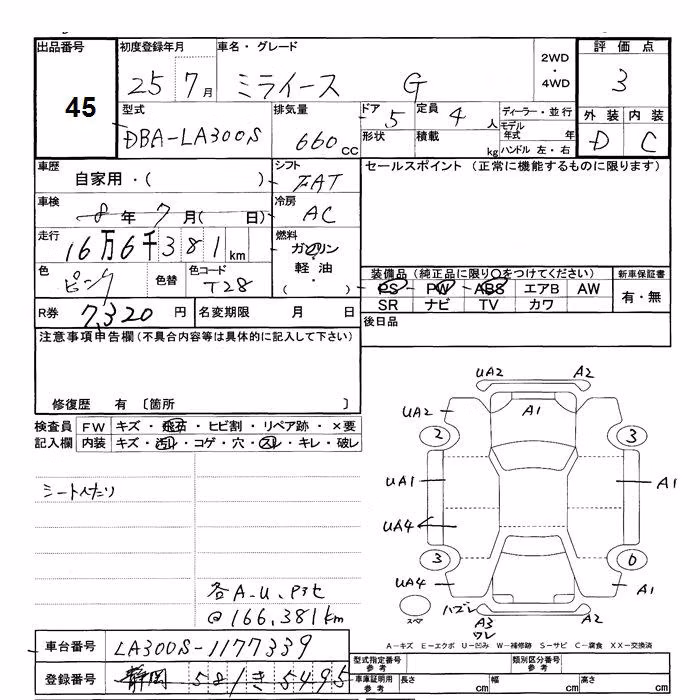 出品番号 初度登録年月 車名・グレード 2WD・4WD 評価点
45 25 7月 ミライース G 3
型式 排気量 ドア 5 定員 4人 ディーラー・並行 外装 内装
DBA-LA300S 660cc 形状 積載 kg モデル年式 年 D C
ハンドル 左・右
車歴 自家用・( ) シフト FAT セールスポイント (正常に機能するものに限ります)
車検 8年 7月( 日) 冷房 AC
走行 16万6千381km 燃料 ガソリン・軽油・( )
色 ピンク 色替 色コード T28 装備品(純正品に限り○をつけてください) 新車保証書
PS PW ABS エアB AW 有・無
SR ナビ TV カワ
R券 7,320円 名変期限 月 日 後日品
注意事項申告欄(不具合内容等は具体的に記入して下さい)
修復歴 有 〔箇所 〕
検査員 FW キズ・飛石・ヒビ割・リペア跡・×要
記入欄 内装 キズ・汚レ・コゲ・穴・スレ・キレ・破レ
シートへたり
UA2 A2
UA2 A1 A2
2 3
UA1 A1
UA4
3 6
UA4 A1
各A.U.
@166,381km
スペ ハズレ A3 ワレ A2
A-キズ E-エクボ U-凹み W-補修跡 S-サビ C-腐食 XX-交換済
車台番号 LA300S-1177339
型式指定番号 参考 類別区分番号 参考
登録番号 静岡 581 き 5495
車庫証明用 参考 長さ cm 幅 cm 高さ cm